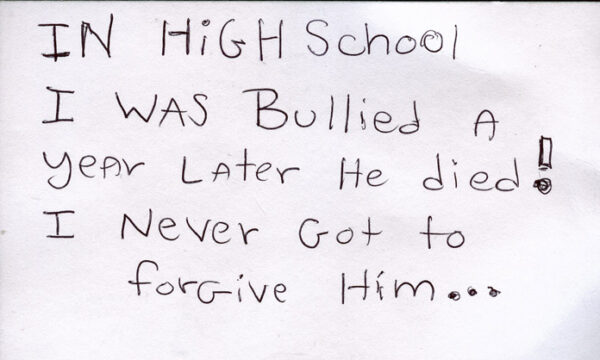 IN HiGH School
I WAS Bullied A
yeAr LAter He died!
I Never Got to
forGive Him...